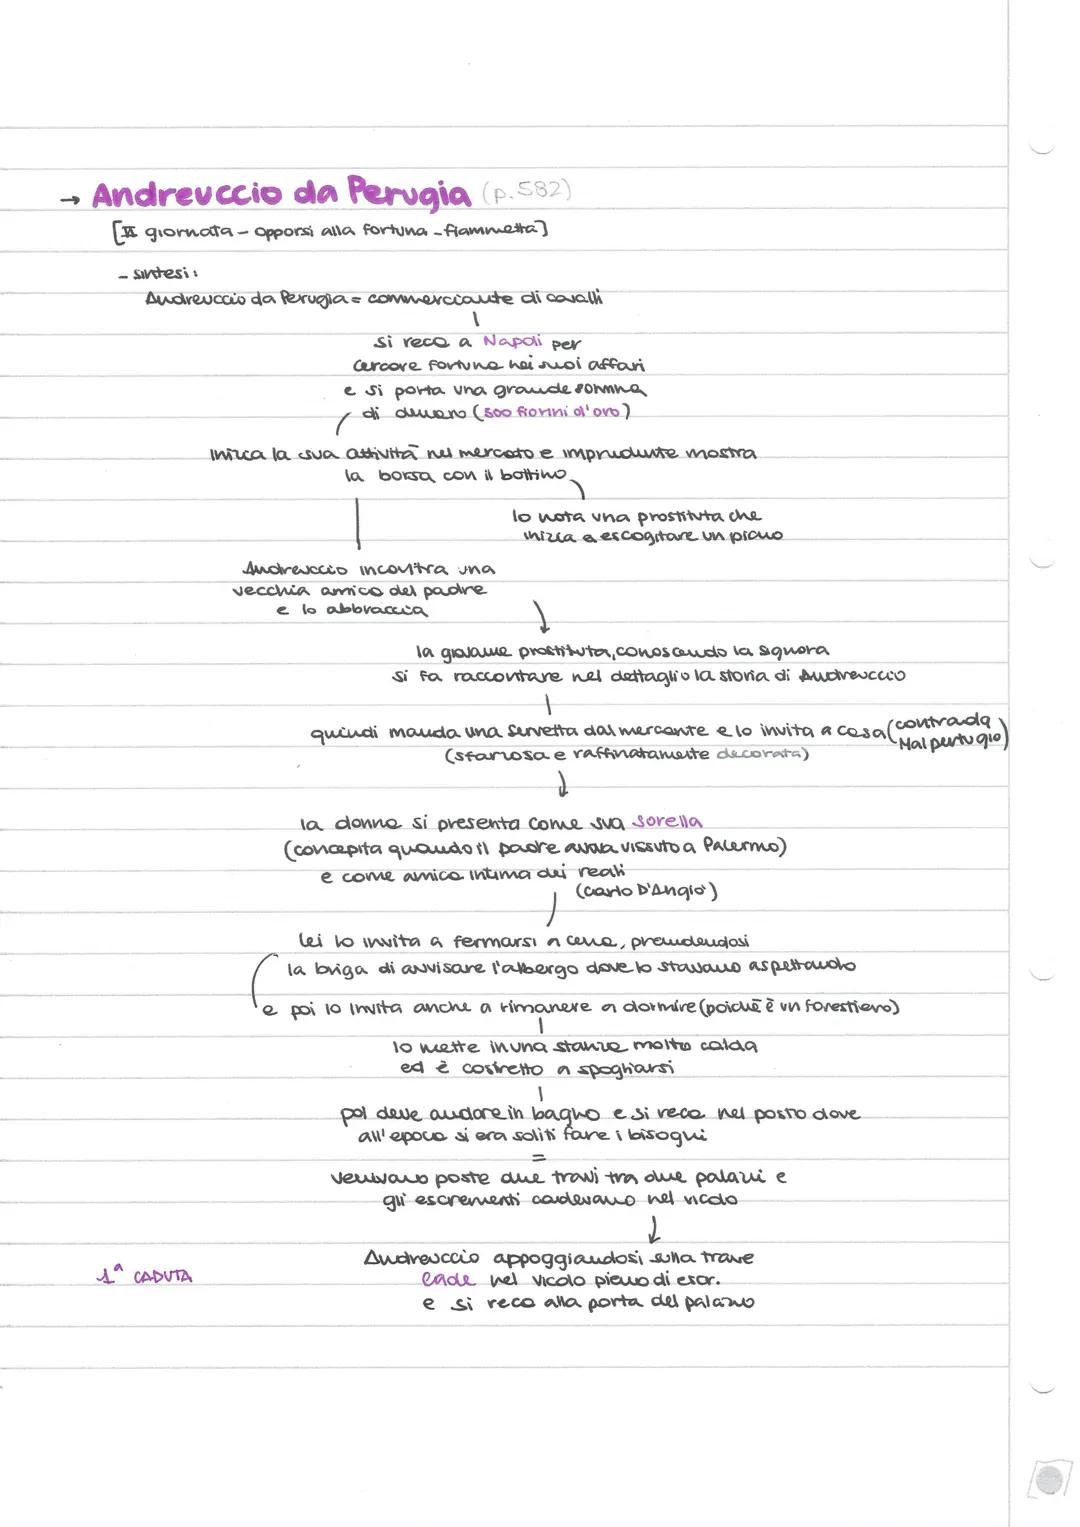 → Andreuccio da Perugia (p.582)
[II giornata - opporsi alla fortuna - fiammetta]
- sintesi:
Andreuccio da Perugia = commerciante di cavalli
si reca a Napoli per
cercare fortuna nei suoi affari
e si porta una grande somma
di denaro (500 fiorini d'oro)
inizia la sua attività nel mercato e imprudente mostra
la borsa con il bottino
lo nota una prostituta che
inizia a escogitare un piano
Andreuccio incontra una
vecchia amica del padre
e lo abbraccia
la giovane prostituta, conoscendo la signora
si fa raccontare nel dettaglio la storia di Andreuccio
quindi manda una servetta dal mercante e lo invita a casa (contrada
Malpertugio)
(sfarzosa e raffinatamente decorata)
la donna si presenta come sua sorella
(concepita quando il padre aveva vissuto a Palermo)
e come amica intima dei reali
(Carlo D'Angiò)
lei lo invita a fermarsi a cena, prendendosi
la briga di avvisare l'albergo dove lo stavano aspettando
e poi lo invita anche a rimanere a dormire (poiché è un forestiero)
lo mette in una stanza molto calda
ed è costretto a spogliarsi
poi deve andare in bagno e si reca nel posto dove
all'epoca si era soliti fare i bisogni
=
venivano poste due travi tra due palazzi e
gli escrementi cadevano nel vicolo
Andreuccio appoggiandosi sulla trave
1ª CADUTA
cade nel vicolo pieno di escr.
e si reca alla porta del palazzo